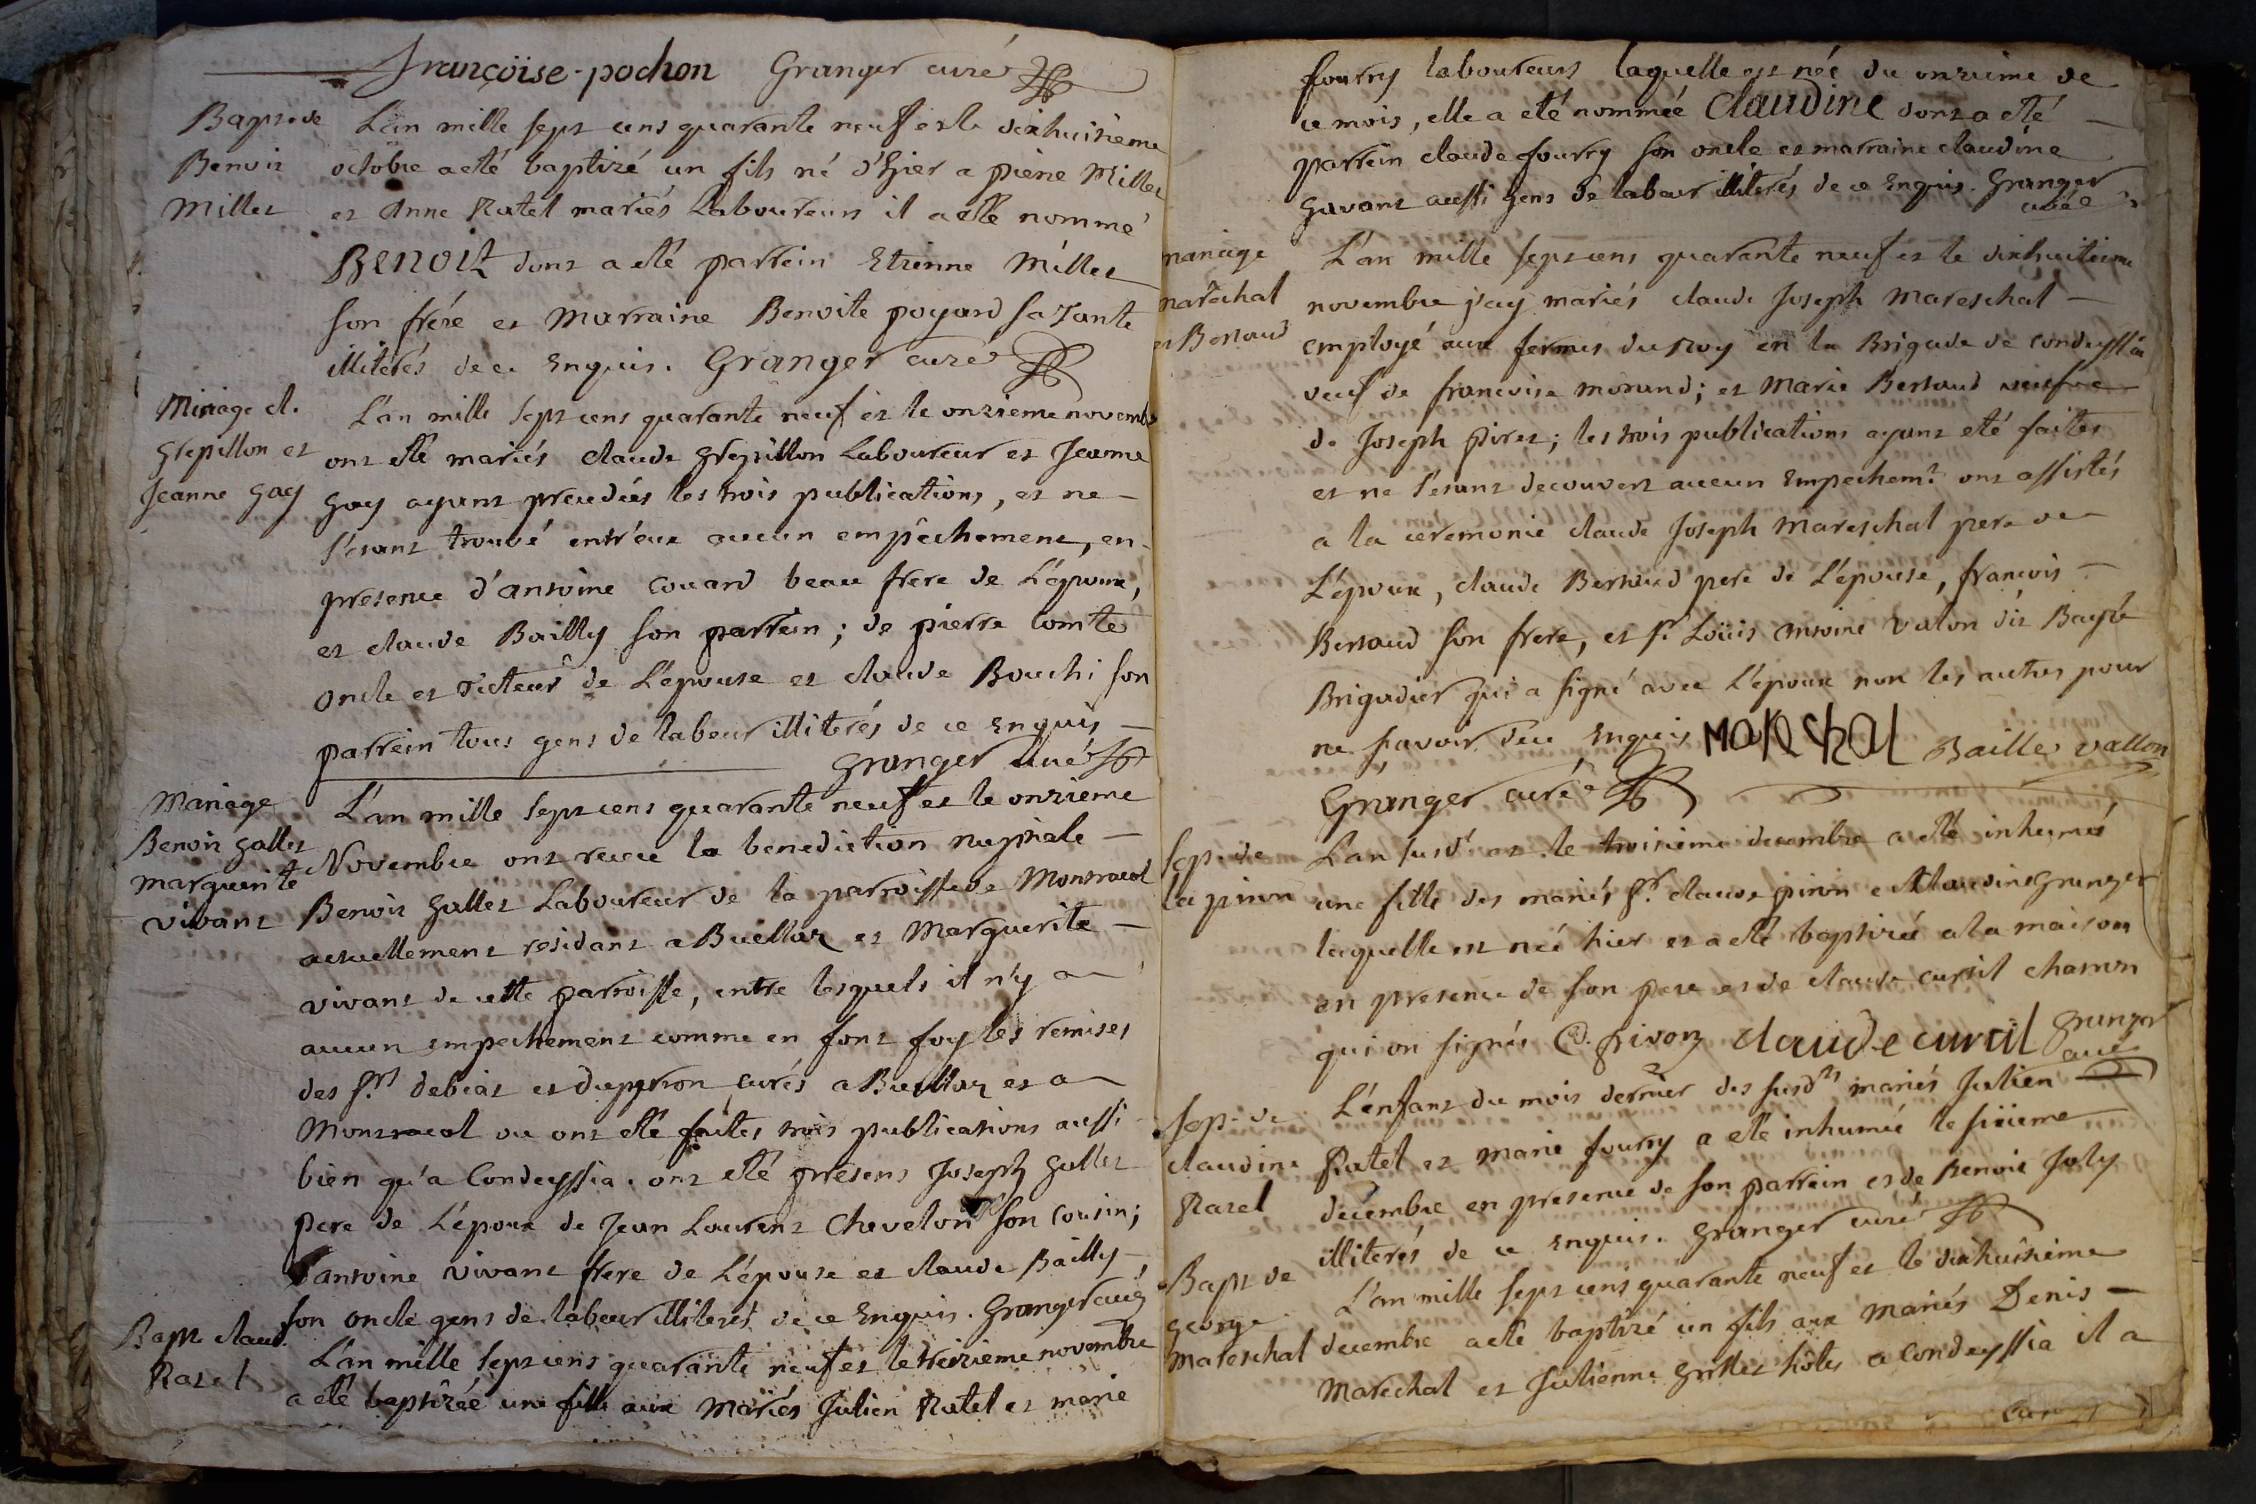 françoise-pochon Granger curé
Bapt. de
Benoit
Millet
L'an mille sept cens quarante neuf et le dixhuitieme
octobre a eté baptizé un fils né d'hier a pierre Millet
et Anne Ratel mariés Laboureurs il a eté nommé
BENOIT dont a eté parrein Etienne Millet
son frére et Marraine Benoite poyard sa Tante
illiterés de ce Enquis. Granger curé
Mariage cl.
grepillon et
Jeanne gay
L'an mille sept cens quarante neuf et le onzieme novembre
ont eté mariés claude grepillon Laboureur et Jeanne
gay ayant precedées les trois publications, et ne
s'etant trouvé entr'eux aucun empêchement, en
presence d'antoine couard beau frere de L'époux,
et claude Bailly son parrein; de pierre Comte
oncle et Tuteur de L'epouse et claude Bouchi son
parrein tous gens de labeur illiterés de ce Enquis
granger curé
Mariage
Benoit gallet
marguerite
vivant
L'an mille sept cens quarante neuf et le onzieme
Novembre ont receu la benediction nuptiale
Benoit gallet Laboureur de la parroisse de Montracol
actuellement residant a Buellaz et Marguerite
vivant de cette parroisse, entre lesquels il n'y a
aucun empechement comme en font foy les remises
des srs debiaz et duperron curés a Buellaz et a
Montracol ou ont eté faites trois publications aussi
bien qu'a Condeyssia. ont eté presens Joseph gallet
pere de L'époux de Jean Laurent Chevelon son cousin;
D'antoine vivant frere de L'épouse et claude Bailly,
son oncle gens de labeur illiterés de ce Enquis. Granger curé
Bapt. claud.
Ratel
L'an mille sept cens quarante neuf et le treizieme novembre
a eté baptizée une fille aux Mariés Julien Ratel et marie
fourry laboureurs laquelle est née du onzieme de
ce mois, elle a eté nommée claudine dont a eté
parrein claude fourry son oncle et marraine claudine
gavant aussi gens de labeur illiterés de ce Enquis. Granger
curé
mariage
marêchal
et Bertaud
L'an mille sept cens quarante neuf et le dixhuitieme
novembre j'ay mariés claude Joseph Mareschal
employé aux fermes du Roy en la Brigade de condeyssia
veuf de francoise morand; et Marie Bertaud veufve
de Joseph pirez; les trois publications ayant eté faites
et ne s'etant decouvert aucun Empechemt. ont assistés
a la ceremonie claude Joseph Mareschal pere de
L'époux, claude Bertaud pere de L'épouse, francois
Bertaud son frere, et sr. Loüis antoine valon dit Bayle
Brigadier qui a signé avec L'époux non les autres pour
ne sçavoir de ce Enquis MaReschal Bailles vallon
Granger curé
sept. de
la piron
L'an susdt. et le troisieme decembre a eté inhumée
une fille des mariés sr. claude piron et claudine granger
laquelle est née hier et a eté baptizée a la maison
en presence de son pere et de claude curtil
qui on signés C. pivon claude curtil Granger
curé
sep. de
claudine
Ratel
L'enfant du mois dernier des susdts mariés Julien
Ratel et marie fourry a eté inhumée le sixieme
décembre en presence de son parrein et de Benoit Joly
illiterés de ce Enquis. granger curé
Bapt. de
george
Mareschal
L'an mille sept cens quarante neuf et le dixhuitieme
decembre a eté baptizé un fils aux mariés Denis
Maréchal et Julienne grillet hôtes a condeyssia il a